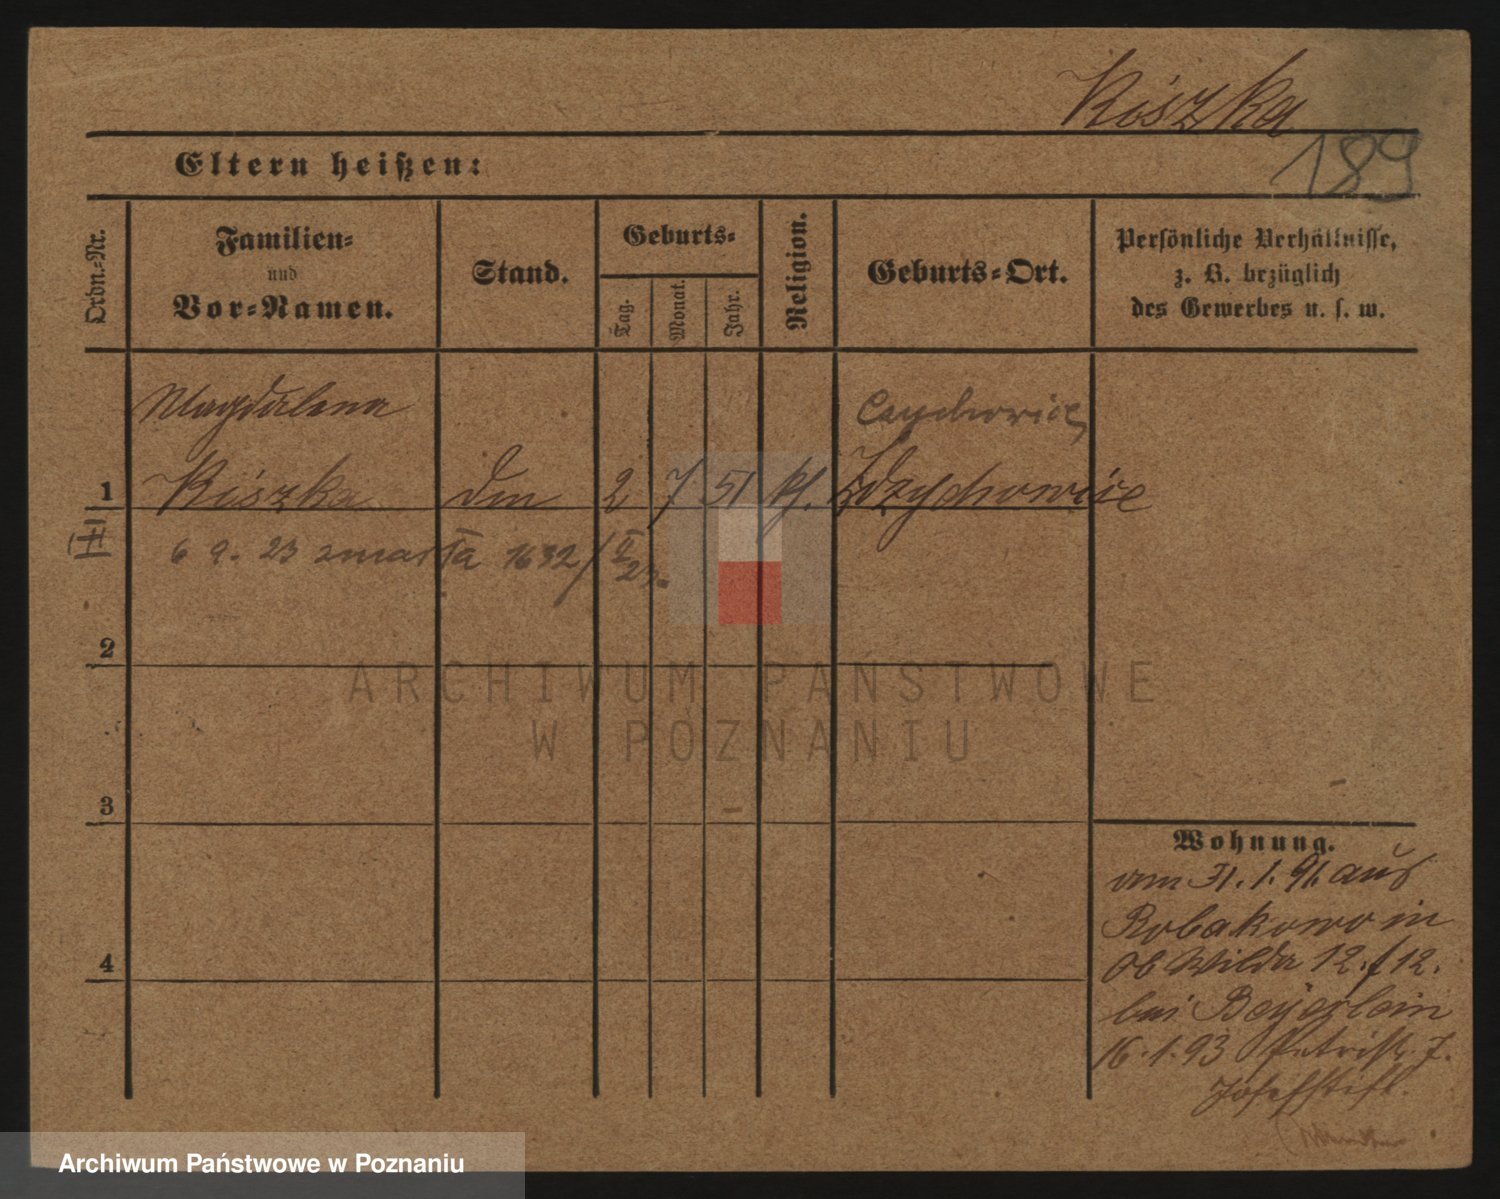 Kiszka
189
Eltern heißen:
Ordn.-Nr.
Familien-
und
Vor-Namen.
Stand.
Geburts-
Tag.
Monat.
Jahr.
Religion.
Geburts-Ort.
Persönliche Verhältnisse,
z. B. bezüglich
des Gewerbes u. s. w.
Magdalena
1 Kiszka 2 7 51 kf. Zdzychowice
6 9. 23 zmarła 1632/
2
ARCHIWUM PAŃSTWOWE
W POZNANIU
3
Wohnung.
am 31.1.91. aus
Robakowo in
Ob Wilda 12./12.
bei Beyerlein
16.1.93 Petristr. 7.
Josefstift.
4
Archiwum Państwowe w Poznaniu